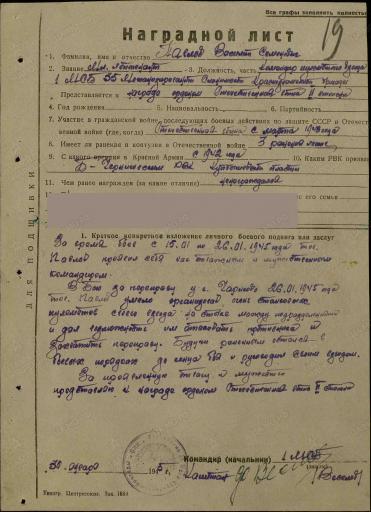 Все графы заполнять полностью
19
Наградной лист
1. Фамилия, имя и отчество Павлов Василий Семенович
2. Звание Мл. лейтенант 3. Должность, часть командир пулеметного взвода
1 МСБ 55
Представляется к награде орденом Отечественной войны II степени
4. Год рождения 5. Национальность 6. Партийность
7. Участие в гражданской войне, последующих боевых действиях по защите СССР и Отечественной войне (где, когда) Отечественная война с марта 1943 года
8. Имеет ли ранения и контузии в Отечественной войне 3 ранения
9. С какого времени в Красной Армии с 1942 года 10. Каким РВК призван
РВК области
11. Чем ранее награжден (за какие отличия) ненагражден
ДЛЯ ПОДШИВКИ
1. Краткое конкретное изложение личного боевого подвига или заслуг
За время боев с 15.01 по 26.01.1945 года тов.
Павлов проявил себя как и мужественным
командиром.
В бою за переправу у с. 26.01.1945 года
тов. Павлов умело организовал огонь станковых
пулеметов своего взвода на стыке между подразделениями
и дал возможность им атаковать противника и
захватить переправу. Будучи раненым остался в
боевых порядках до конца боя и руководил своим взводом.
За проявленную отвагу и мужество
представляю к награде орденом Отечественной войны II степени
Командир (начальник) 1 МСБ
30 января 1945 г. Капитан
Типогр. Центросоюза. Зак. 1884